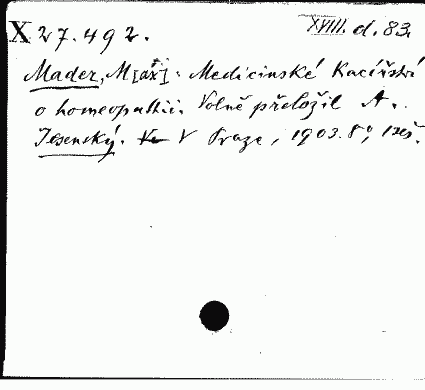 X 27.492. XVIII. d. 83.
Mader, M[ax]. Medicinské Kacířství
o homeopathii. Volně přeložil A.
Jesenský. V Praze, 1903. 8°, 1 seš.